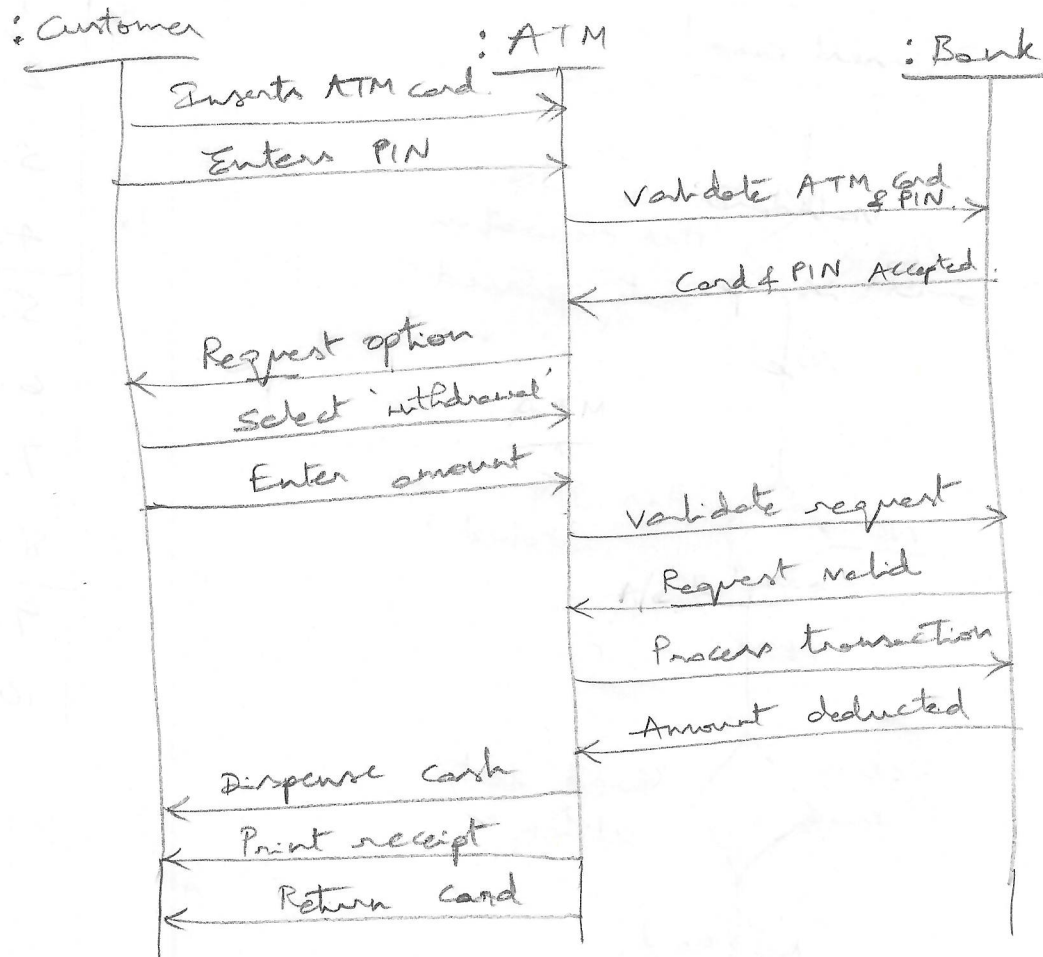 : Customer
: ATM
: Bank
Inserts ATM card.
Enters PIN
Validate ATM Card
& PIN.
Card & PIN Accepted.
Request option
Select 'withdrawal'
Enter amount
Validate request
Request valid
Process transaction
Amount deducted
Dispense cash
Print receipt
Return card